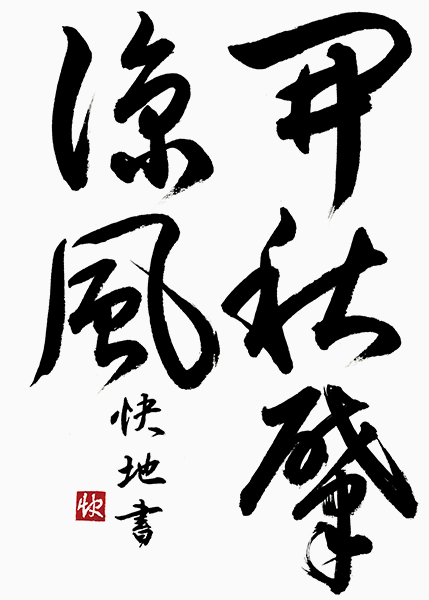 開秋肇
涼風
快地書
快